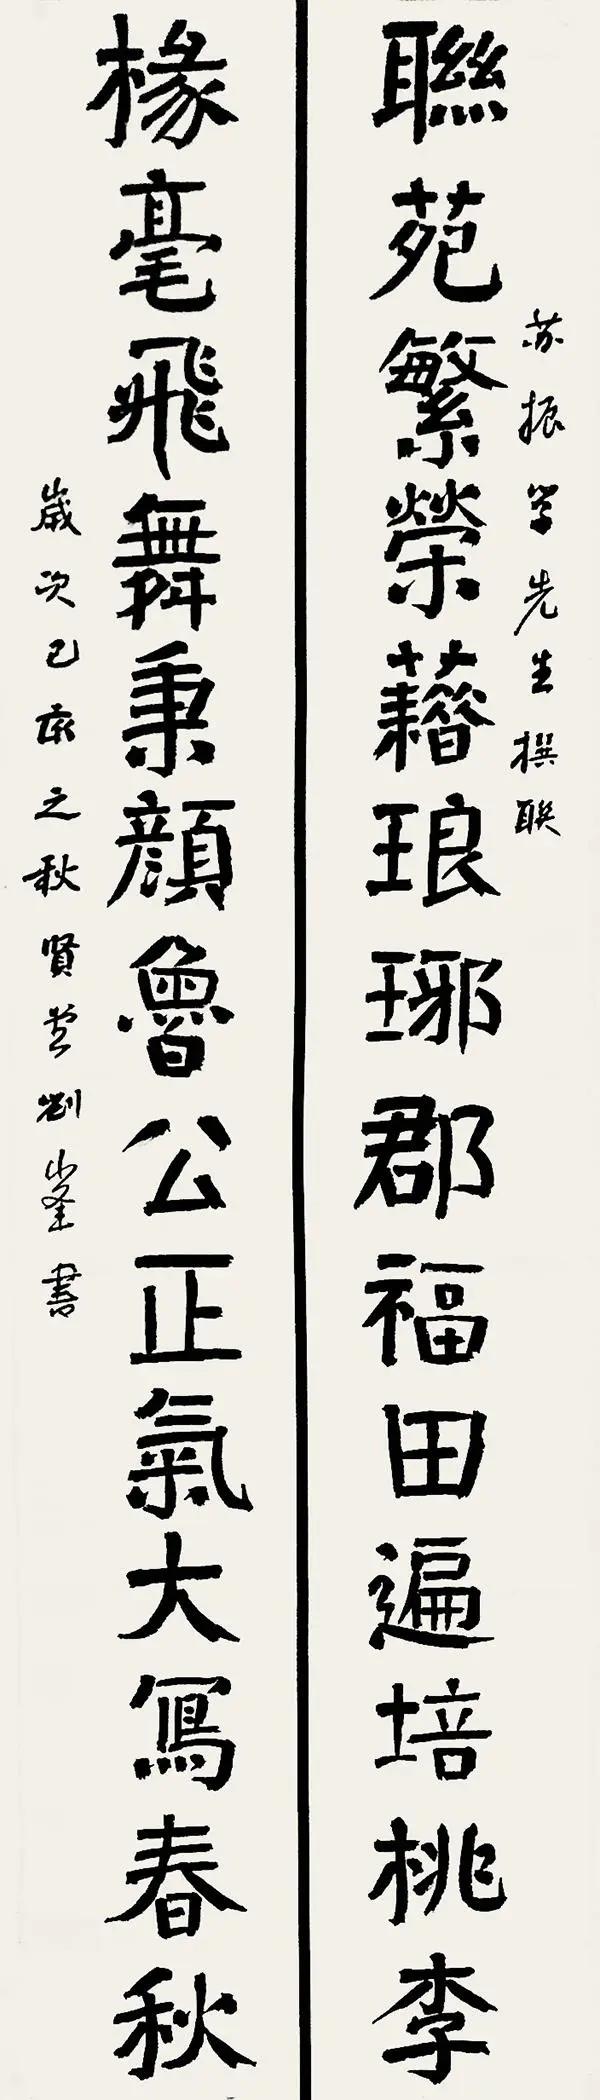 苏振学先生撰联
聯苑繁榮藉琅琊郡福田遍培桃李
椽毫飛舞秉顔魯公正氣大寫春秋
歲次己亥之秋賢堂劉峯書